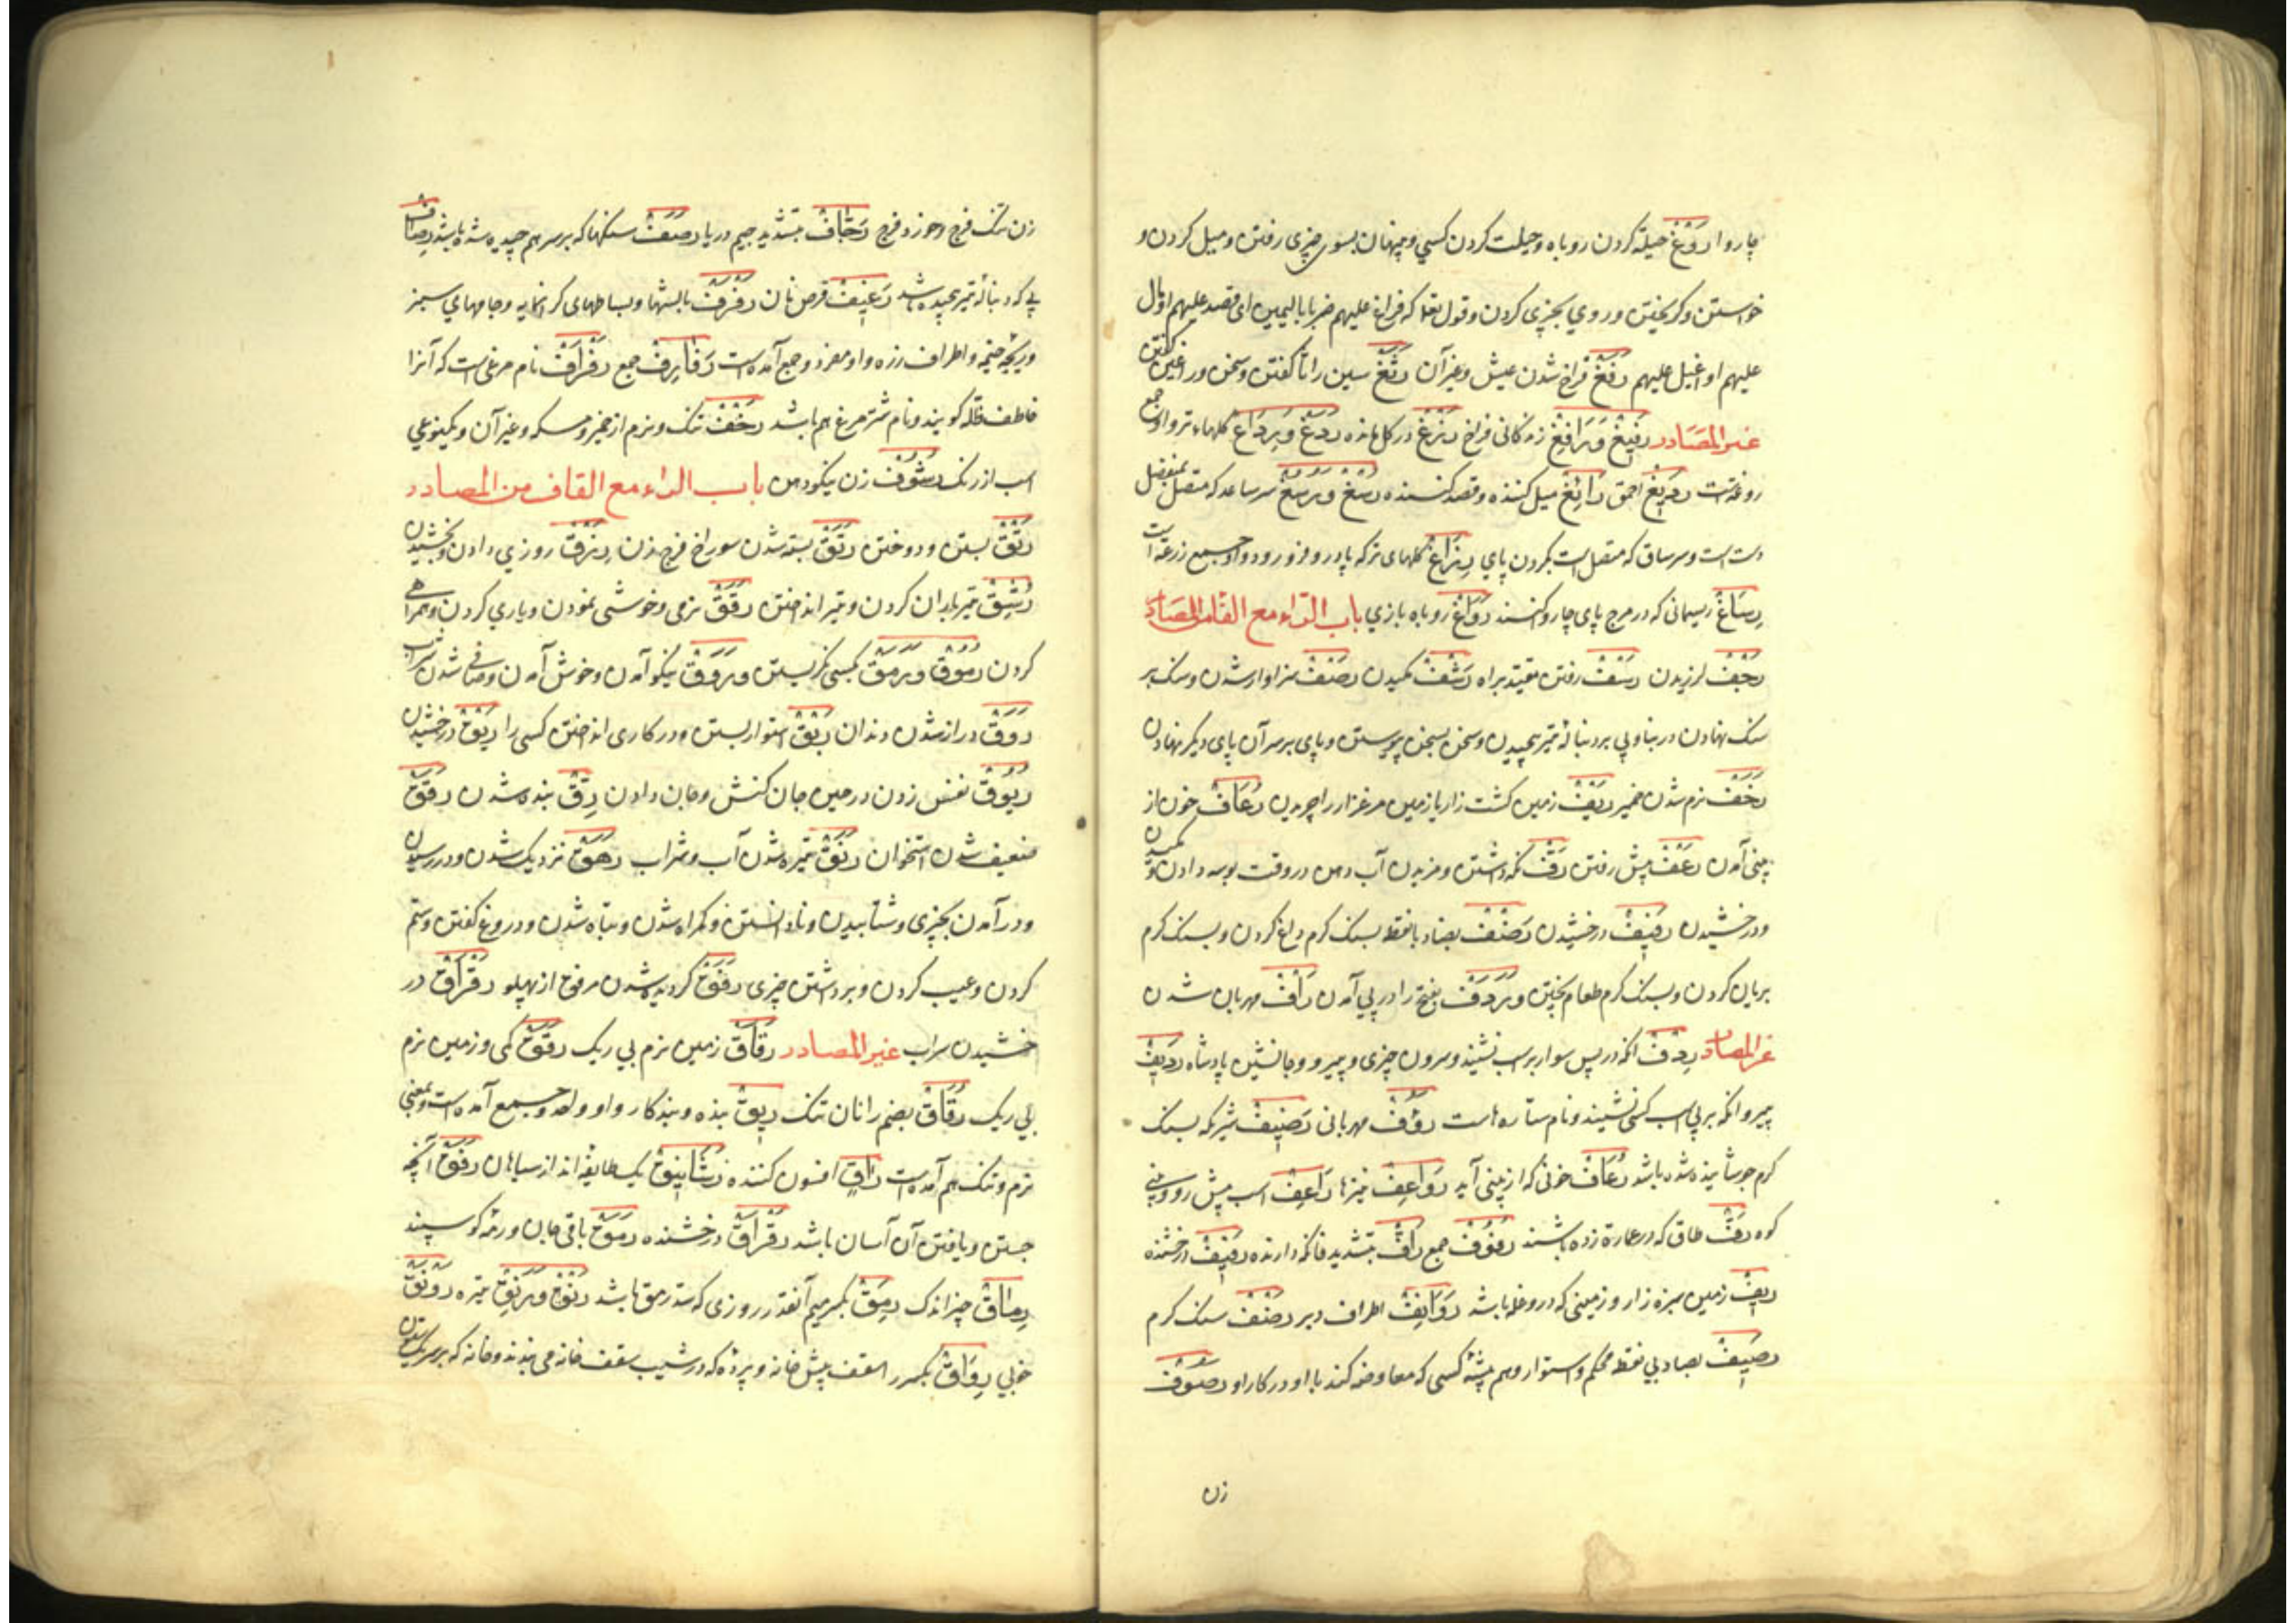 چاروا رَوْغ حیله کردن روباه و حیلت کردن کسی و پنهان بسوی چیزی رفتن و میل کردن و
خواستن و کریختن و روی بچیزی کردن و قوله تعا که فراغ علیهم ضربا بالیمین ای قصد علیهم او مال
علیهم او اقبل علیهم رَفْغ فراخ شدن عیش و غیر آن رَثَغ سین را ثا کفتن و سخن ورا غین کفتن
غیر المصادر رَفِیغ و رَافِغ زندکانی فراخ رَزَغ در کل مانده رَدَغ و رِدَاغ کلهاء تر و او جمع
روغه است رَدِیغ احمق رَائِغ میل کننده و قصد کننده رُسْغ و رُسُغ سر ساعد که متصل بمفصل
دست است و سر ساق که متصل است بکردن پای رِزَاغ کلهای تر که پا در و فرو رود و او جمیع رزغه است
رِسَاغ ریسمانی که در مرج پای چاروا کنند رَوَاغ روباه بازی باب الراء مع الفا من المصادر
رَجْف لرزیدن رَسْف رفتن مقید براه رَشْف مکیدن رَصْف سزاوار شدن و سنک بر
سنک نهادن در بنا و پی بر دنبالۀ تیر پیچیدن و سخن بسخن پیوستن و پای بر سر آن پای دیکر نهادن
رَخَف نرم شدن خمیر رَیْف زمین کشت زار یا زمین مرغزار را چریدن رُعَاف خون از
بینی آمدن رَعْف پیش رفتن رَفّ نکه داشتن و مزیدن آب دهن در وقت بوسه دادن و مکیدن
و درخشیدن رَفِیف درخشیدن رَضْف بضاد با نقطه بسنک کرم داغ کردن و بسنک کرم
بریان کردن و بسنک کرم طعام پختن و رَدَف بفتح را در پی آمدن رَأَف مهربان شدن
غیر المصادر رِدْف آنکه در پس سوار بر اسب نشیند و سرون چیزی و پیرو و جانشین پادشاه رَدِیف
پیرو آنکه بر پی اسب کسی نشیند و نام ستاره است رَؤُف مهربانی رَضِیف شیر که بسنک
کرم جوشانیده شده باشد رُعَاف خونی که از بینی آید رَوَاعِف نیزها رَاعِف اسب پیش رو و بینی
کوه رَفّ طاق که در عمارة زده باشند رُفُوف جمع رَافّ بتشدید فا نکه دارنده رَفِیف درخشنده
رِیف زمین سبزه زار و زمینی که درو غله باشد رَوَانِف اطراف دبر رَضْف سنک کرم
رَصِیف بصاد بی نقطه محکم و استوار و هم پیشۀ کسی که معاوضه کند با او در کار او رَصُوف
زن
زن تنک فرج و خورد فرج رَجَّاف بتشدید جیم دریا رَصَف سنکها که بر سر هم چیده شده باشد رِصَاف
پی که دنبالۀ تیر پیچیده باشد رَغِیف قرص نان رَفْرَف بالشها و بساطهای کرانمایه و جامهای سبز
و ریکچه خیمه و اطراف زره و او مفرد و جمع آمده است رَفَارِف جمع رَفْرَاف نام مرغی است که آنرا
خاطف ظله کویند و نام شتر مرغ هم باشد رَخْف تنک و نرم از خمیر و مسکه و غیر آن و یکنوعی
اسب از رنک رَشُوف زن نیکو دهن باب الراء مع القاف من المصادر
رَتْق بستن و دوختن رَتَق بسته شدن سوراخ فرج زن رِزْق روزی دادن و بخشیدن
رَشْق تیر باران کردن و تیر انداختن رِفْق نرمی و خوشی نمودن و یاری کردن و همراهی
کردن رُمُوق و رَمْق بکسی نکریستن و رَوْق نیکو آمدن و خوش آمدن و صافی شدن شراب
رَوَق دراز شدن دندان رَبْق استوار بستن و در کاری انداختن کسی را رَیْق درخشیدن
رُیُوق نفس زدن در حین جان کنش و جان دادن رِقّ بنده شدن رَقَق
ضعیف شدن استخوان رَنَق تیره شدن آب و شراب رَهَق نزدیک شدن و در رسیدن
و درآمدن بچیزی و شتابیدن و نادانستن و کمراه شدن و تباه شدن و دروغ کفتن و ستم
کردن و عیب کردن و برداشتن چیزی رَفَق کردیده شدن مرفق از پهلو رَقْرَاق در
خشیدن سراب غیر المصادر رَقَاق زمین نرم بی ریک رَقَق کمی و زمین نرم
بی ریک رُقَاق بضم را نان تنک رَقِیق بنده و بندکار و او واحد و جمیع آمده است و بمعنی
نرم و تنک هم آمده است رَاقِی افسون کننده رَشَائِیق یک طایفه اند از سیاهان رَفَق آنچه
جستن و یافتن آن آسان باشد رَقْرَاق درخشنده رَمَق باقی جان و رمۀ کوسپند
رِمَاق چیز اندک رَمِق بکسر میم آنقدر روزی که سد رمق باشد رَنْق و رَنِق تیره رَوْنَق
خوبی رِوَاق بکسر را سقف پیش خانه و پرده که در شیب سقف خانه می بندند و خانه که بر سر یک ستون